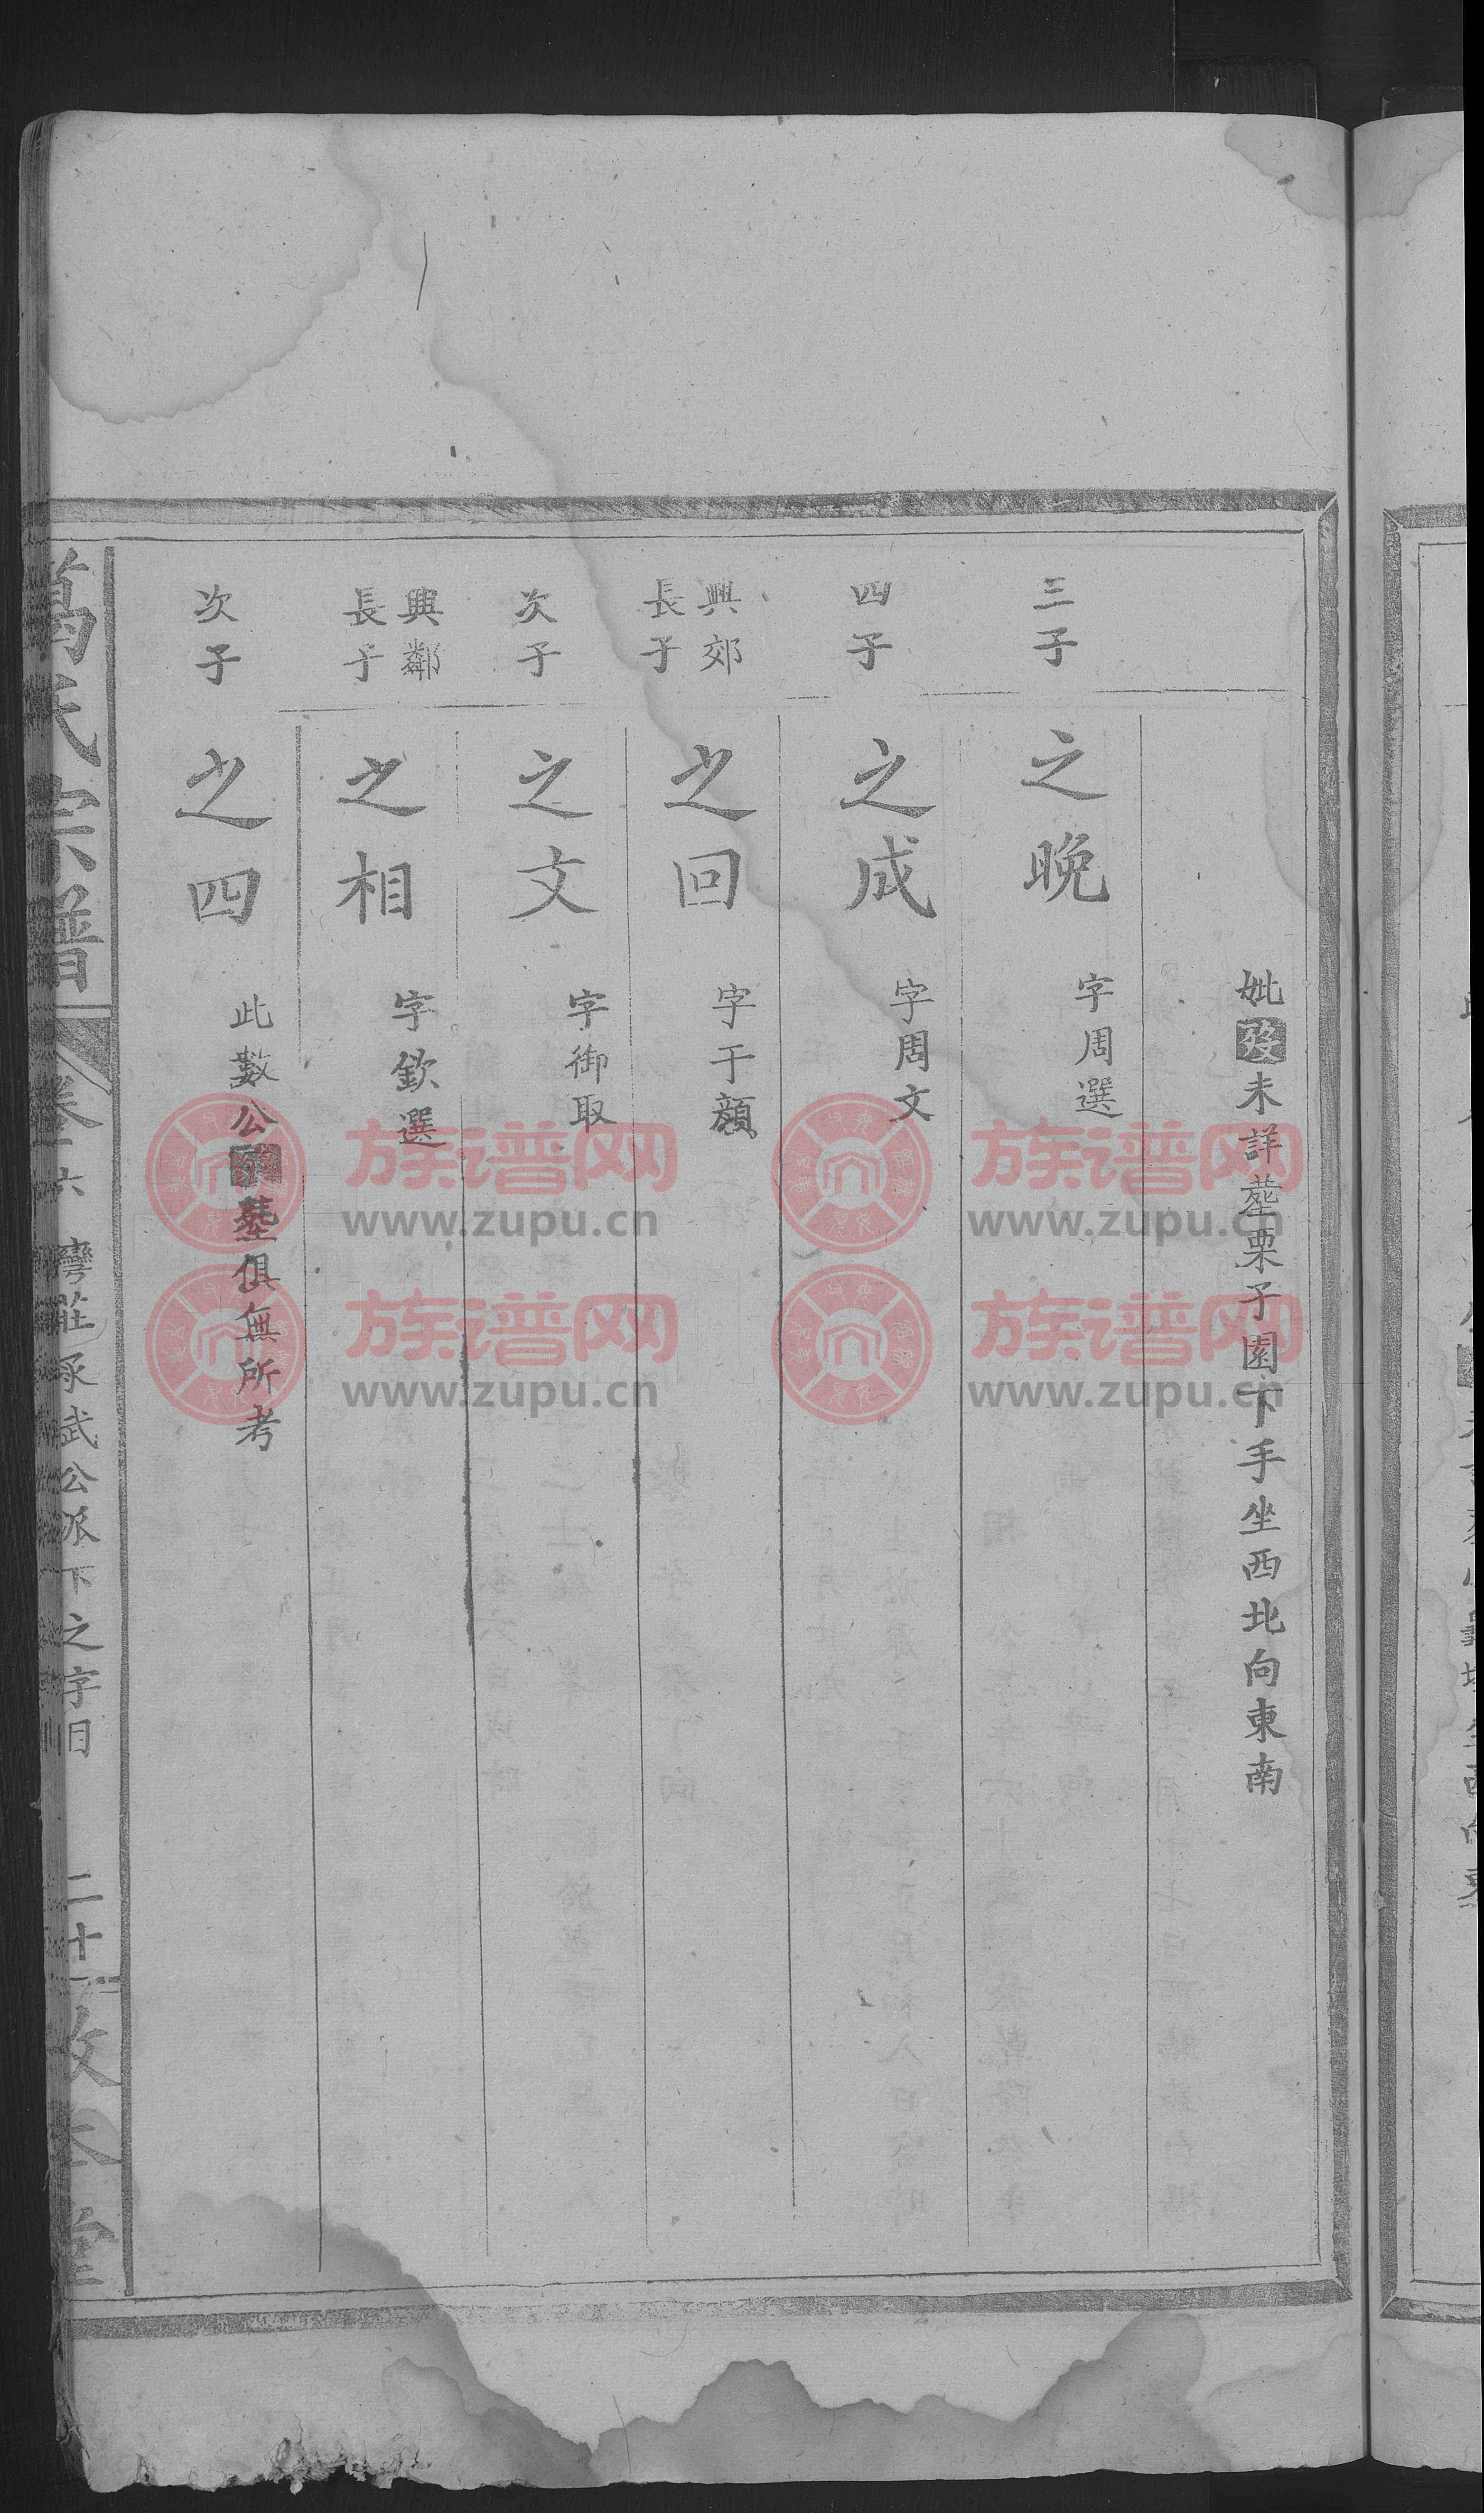 妣歿未詳塟栗子園下手坐西北向東南
三子
之晚
字周選
四子
之成
字周文
興郊
長子
之回
字于顏
次子
之文
字御取
興鄰
長子
之相
字欽選
次子
之四
此數公歿塟俱無所考
萬氏宗譜
卷六
灣莊承武公派下之字目
二十一
敦本堂
族谱网
www.zupu.cn
族谱网
www.zupu.cn
族谱网
www.zupu.cn
族谱网
www.zupu.cn